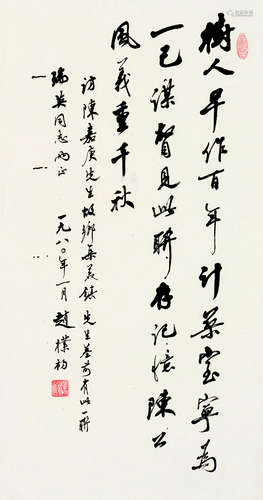 樹人早作百年計築室寧為
一己謀曾見此聯存記憶陳公
風義重千秋
訪陳嘉庚先生故鄉集美鎮先生墓前有此一聯
瑞英同志兩正 一九八〇年一月 趙樸初